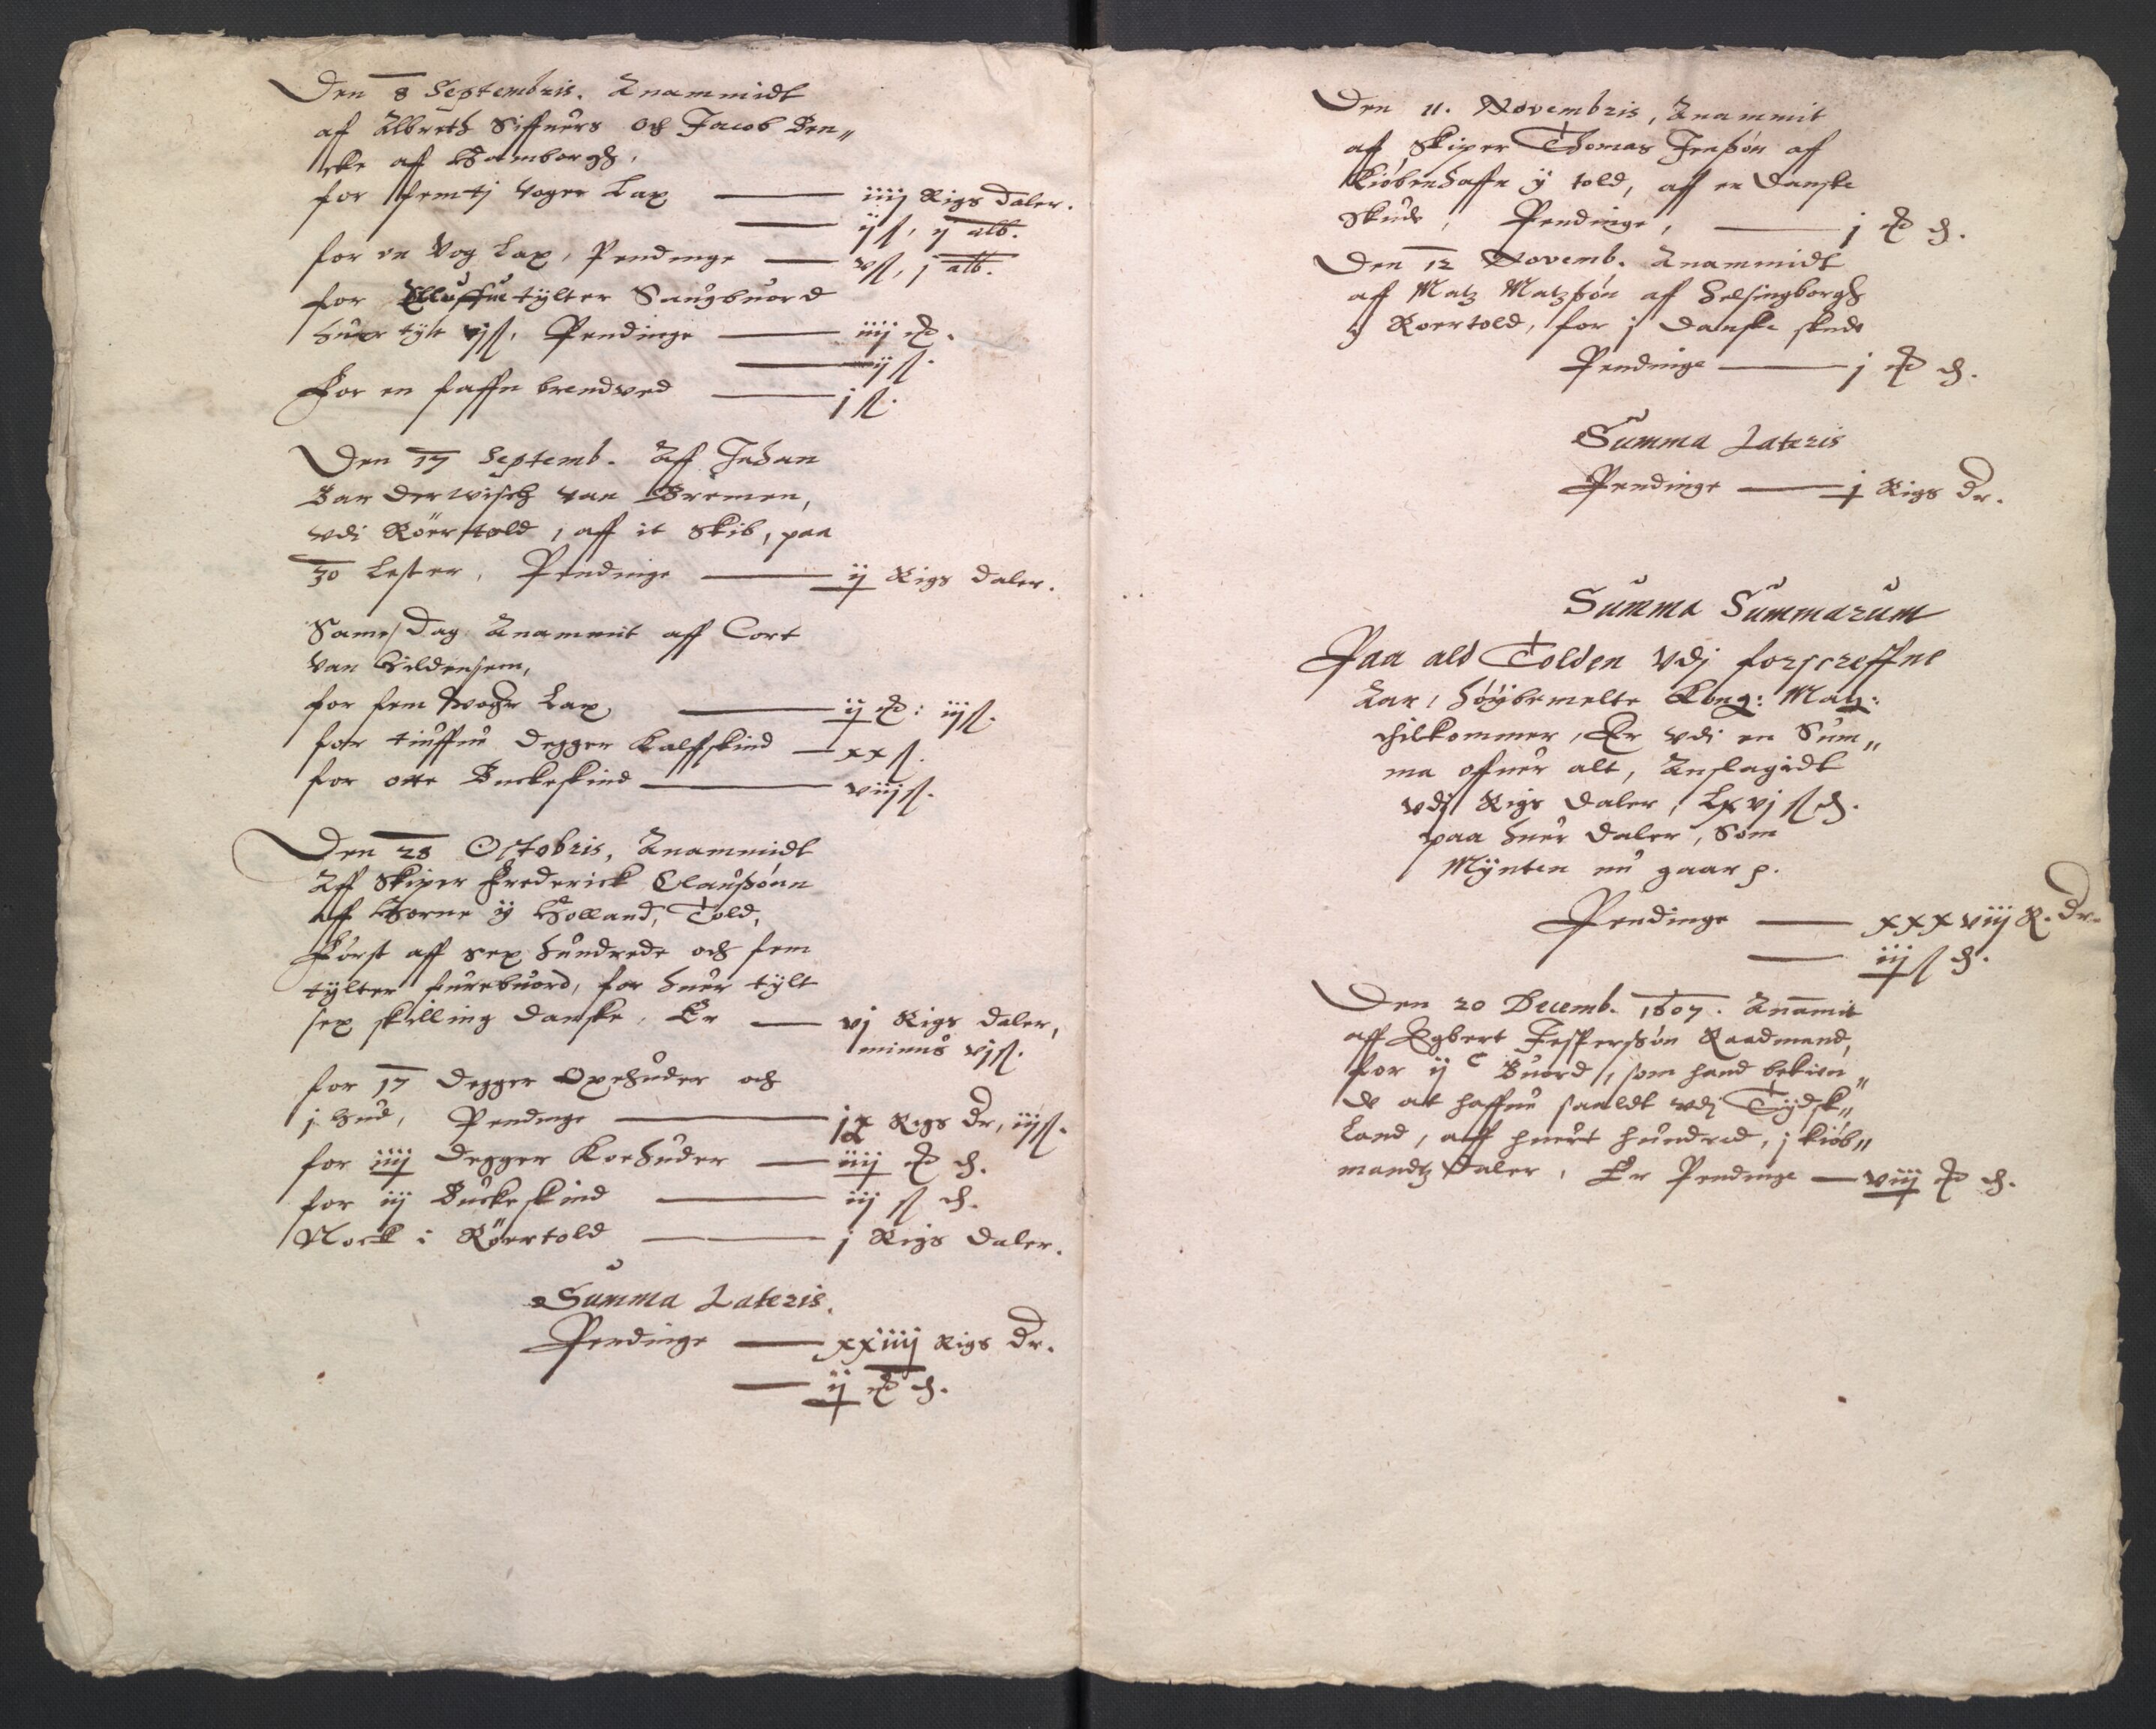 Den 8 Septembris. Anammidt
af Albreth Siffuers och Jacob Den„
cke aff Hamborgh,
for femtj voger Lax — iiij Rigs daler.
— ij ß, ij alb.
for en Vog Lax, Pendinge — v ß, j alb.
for Elluffue tylter Saugbuord
huer tylt vj ß, Pendinge — iiij
— ij ß.
For en faffn brendved — j ß.
Den 17 Septemb. Aff Johan
Bar derwisch van Bremen,
vdi Röertold, aff it Skib, paa
30 Lester, Pendinge — ij Rigs daler.
Same Dag Anammit aff Cort
van Hildensem,
for fem voger Lax, — ij : iij ß.
for tiuffue degger Kalfskind — xx ß.
for otte Buckeskind — viij ß.
Den 28 Octobris, Anammidt
Aff Skiper Frederick Claußönn
aff Horne ij Holland, Told,
Först aff sex hundrede och fem
tylter furebuord, for huer tylt
sex skilling danske, Er — vj Rigs daler,
minus vj ß.
for 17 degger Oxehuder och
j hud, Pendinge — ix Rigs Dr, iij ß.
for iiij degger Koehuder — iiij d.
for iij Buckeskind — iij ß d.
Nock i Röertold — j Rigs daler.
Summa Lateris.
Pendinge — xxiiij Rigs Dr.
— ij d.
Den 11. Novembris, Anammit
aff Skiper Thomas Jenßön af
Kiöbenhaffn ij told, aff en danske
Skude, Pendinge, — j d.
Den 12 Novemb. Anammidt
aff Matz Matzßön af Helsingborgh
ij Roertold, for j danske skude
Pendinge — j d.
Summa Lateris
Pendinge — j Rigs Dr.
Summa Summarum
Paa ald Tolden Vdj forscreffne
Aar, höybemelte Kong: Maij:
thilkommer, Er vdi en Sum„
ma offuer alt, Anslagidt
vdj Rigs daler, Lxvj ß d.
paa huer daler, Som
Mynten nu gaar p.
Pendinge — xxxviij R. Dr.
— iij ß d.
Den 20 Decemb. 1607. Anamit
aff Egbert Jesperßön Raadmand,
for ij c Buord, som hand bekien„
de at haffue saaldt vdj Tydsk„
land, aff huert hundred, j kiöb„
mandtz daler, Er Pendinge — viij d.